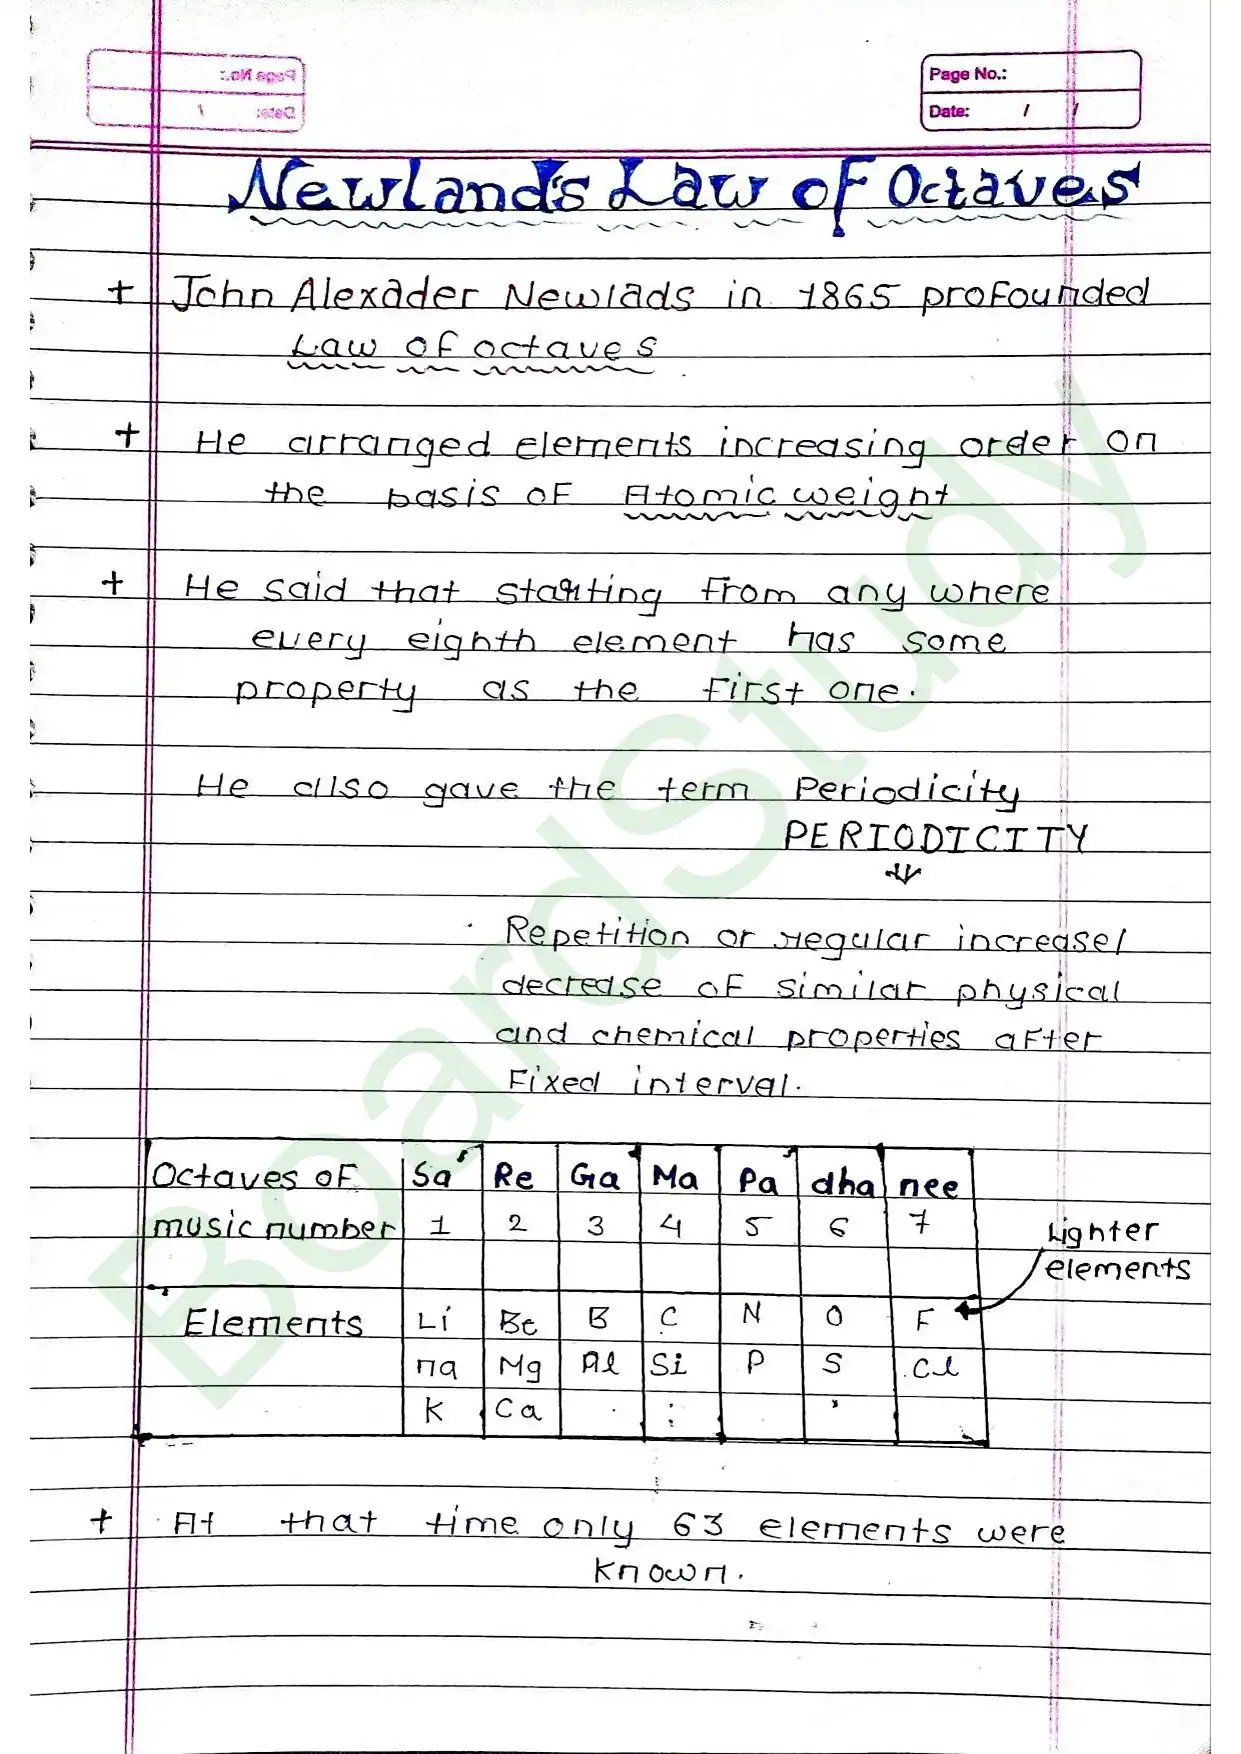 Page No.:
Date: / /
Newland's Law of Octaves
+ John Alexader Newlads in 1865 profounded
Law of octaves
+ He arranged elements increasing order on
the basis of Atomic weight
+ He said that starting from any where
every eighth element has some
property as the first one.
He also gave the term Periodicity
PERIODICITY
Repetition or regular increase/
decrease of similar physical
and chemical properties after
Fixed interval.
Octaves of Sa Re Ga Ma Pa dha nee
music number 1 2 3 4 5 6 7
Lighter
elements
Elements Li Be B C N O F
na Mg Al Si P S Cl
K Ca
+ At that time only 63 elements were
known.
BoardStudy